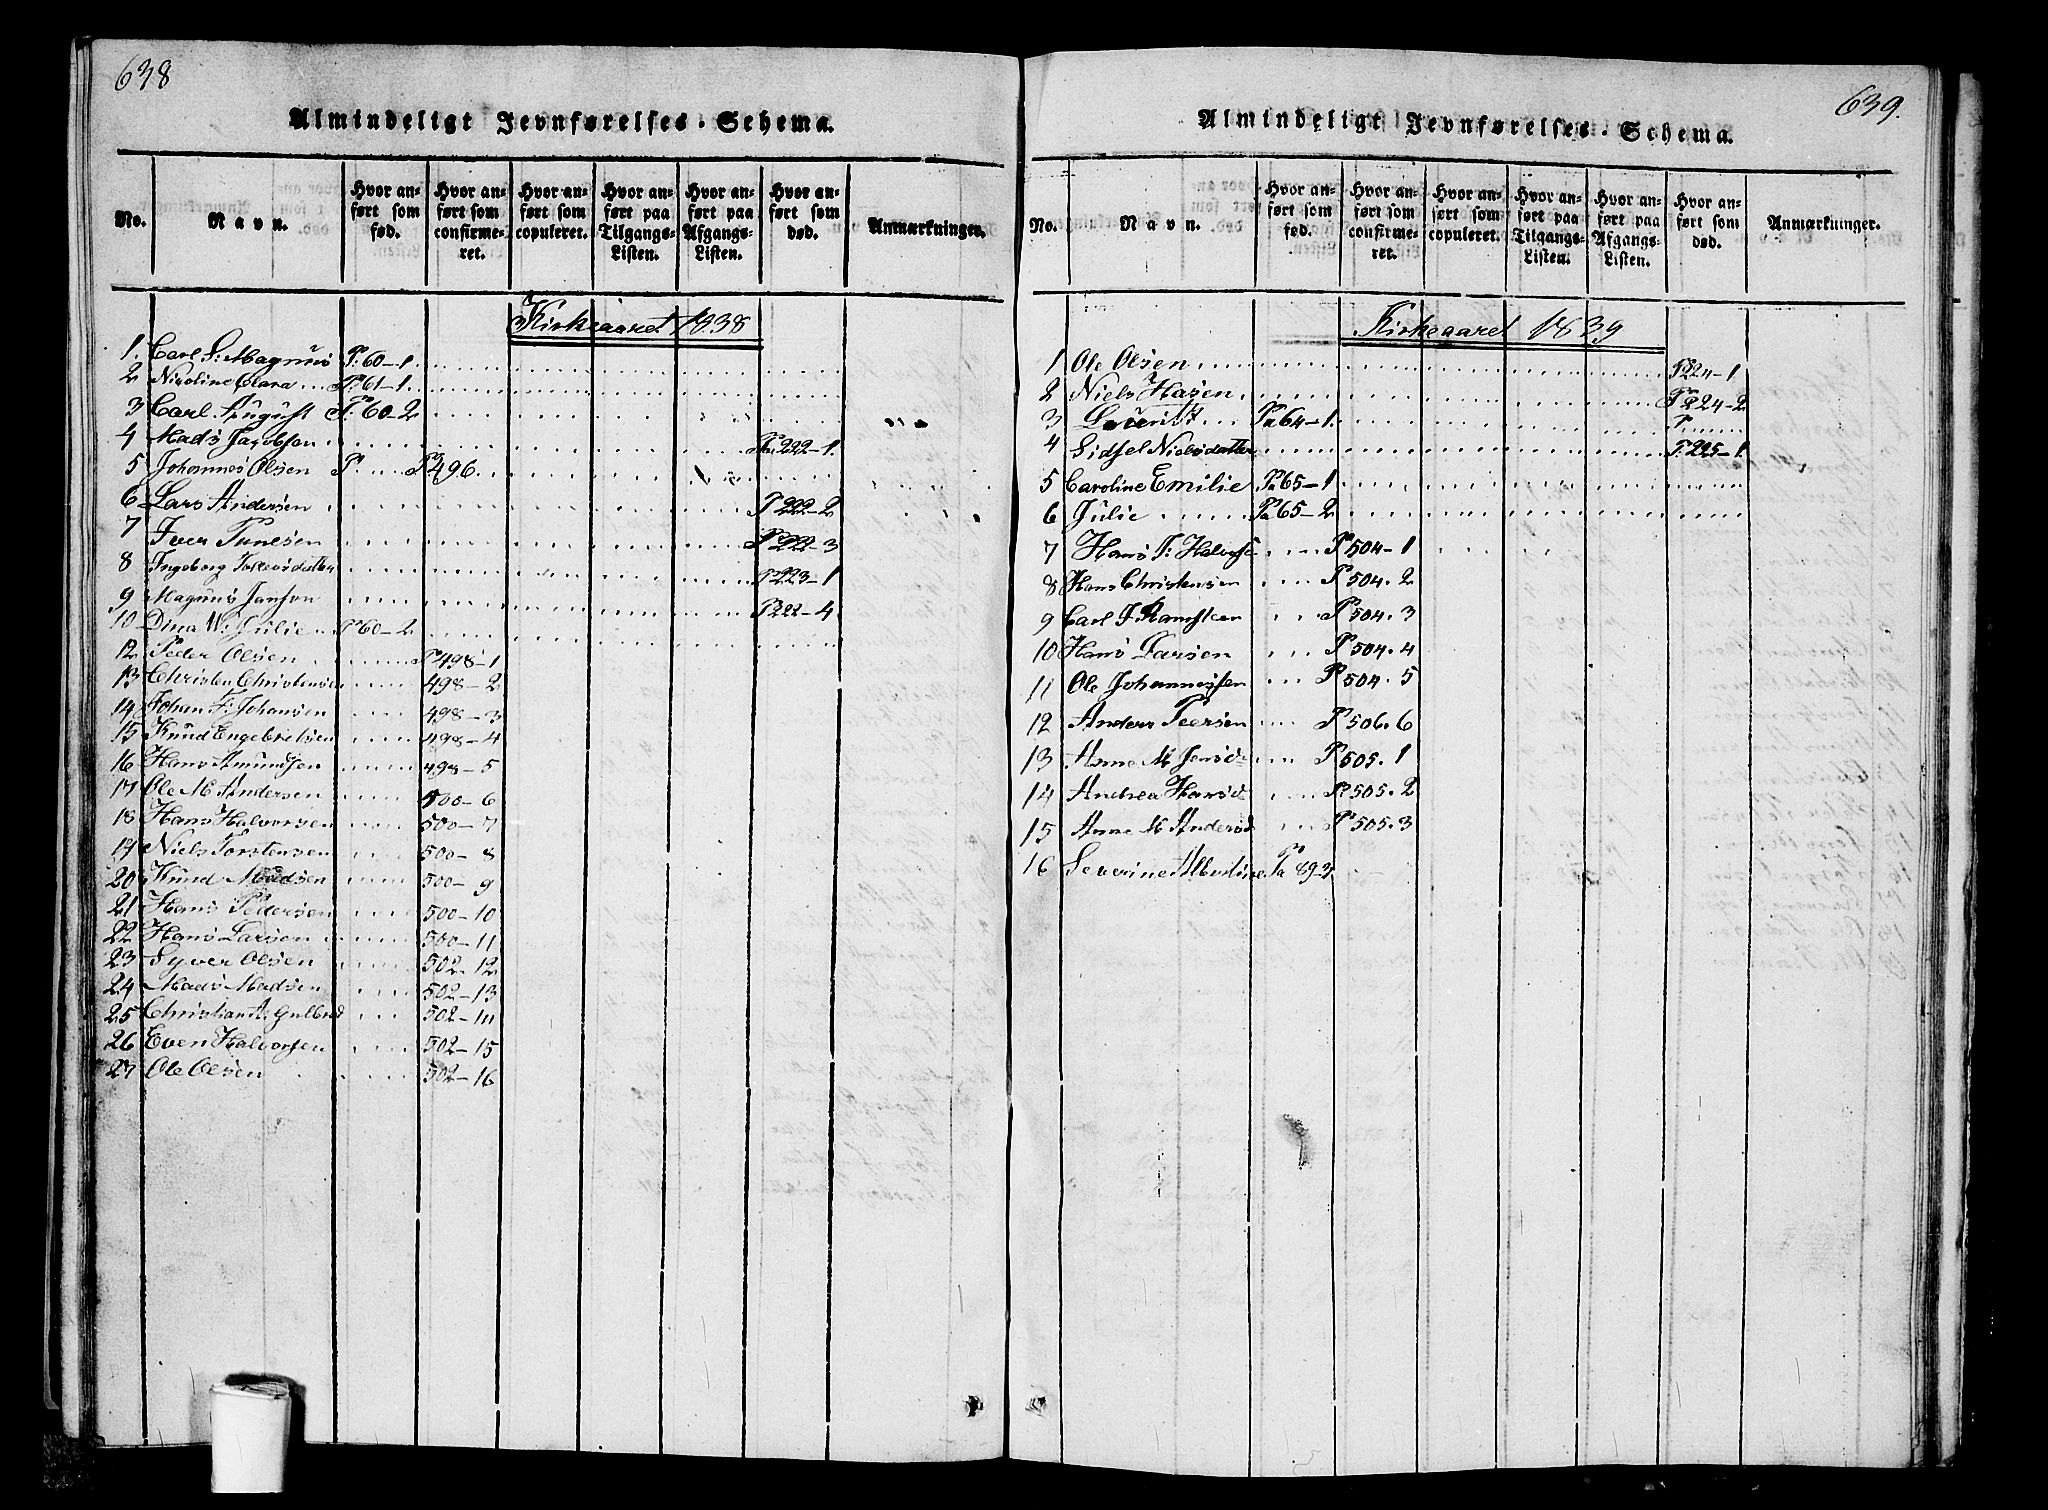 638
Almindeligt Jevnførelses-Schema.
No. Navn. Hvor anført som fød. Hvor anført som confirmeret. Hvor anført som copuleret. Hvor anført paa Tilgangs-Listen. Hvor anført paa Afgangs-Listen. Hvor anført som død. Anmærkninger.
Kirkeaaret 1838
1. Carl S: Magnus P: 60-1
2 Nicoline Clara P. 61-1
3 Carl August P. 60-2
4 Mads Jacobsen Pa 222-1
5 Johannes Olsen P P 496
6 Lars Andersen P 222-2
7 Iver Tunesen P 222-3
8 Ingeborg P 223-1
9 Magnus Janson P 222-4
10 Dina W: Julie P 60-2
12 Peder Olsen P 498-1
13 Christen Christensen 498-2
14 Johan F: Johansen 498-3
15 Knud Engebretsen 498-4
16 Hans Amundsen 498-5
17 Ole M Andersen 500-6
18 Hans Halvorsen 500-7
19 Niels Torstensen 500-8
20 Knud Madsen 500-9
21 Hans Pedersen 500-10
22 Hans Larsen 500-11
23 Syver Olsen 502-12
24 Mads Madsen 502-13
25 Christian A: Gulbrd 502-14
26 Even Halvorsen 502-15
27 Ole Olsen 502-16
639.
Almindeligt Jevnførelses-Schema.
No. Navn. Hvor anført som fød. Hvor anført som confirmeret. Hvor anført som copuleret. Hvor anført paa Tilgangs-Listen. Hvor anført paa Afgangs-Listen. Hvor anført som død. Anmærkninger.
Kirkeaaret 1839
1 Ole Olsen P 224-1
2 Niels Hasen P 224-2
3 Lauritz Pa 64-1 P
4 Sidsel Nielsdatter P 225-1
5 Caroline Emilie Pa 65-1
6 Julie Pa 65-2
7 Hans P: Halvorse P 504-1
8 Hans Christensen P 504.2
9 Carl J Ramsteen P 504.3
10 Hans Larsen P 504.4
11 Ole Johannessen P 504.5
12 Anders Peersen P 506.6
13 Anne M Jensd P 505.1
14 Andrea Hansd P 505.2
15 Anne M Andersd P 505.3
16 Severine Albertine Pa 89-3